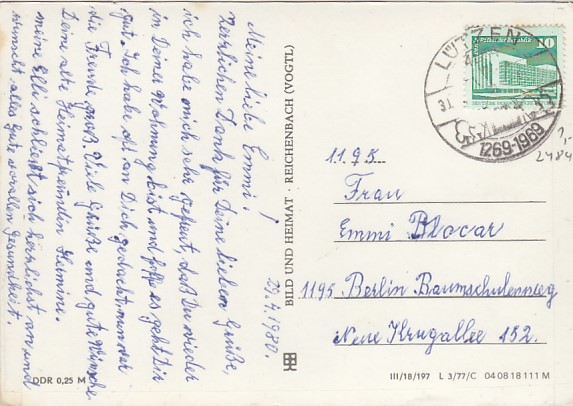 Meine liebe Emmi!
29.7.1980.
Herzlichen Dank für Deine lieben Grüße,
ich habe mich sehr gefreut, daß Du wieder
in Deiner Wohnung bist und hoffe es geht Dir
gut. Ich habe oft an Dich gedacht, nun der
die Freude groß. Viele Grüße und gute Wünsche
Deine alte Heimatfreundin Hermine.
meine Elli schließt sich herzlichst an und
wünscht alles Gute vor allem Gesundheit.
DDR 0,25 M
BILD UND HEIMAT · REICHENBACH (VOGTL)
10
LÜTZEN
1269-1969
2484
11.95.
Frau
Emmi Blocar
1195 Berlin Baumschulenweg
Neue Krugallee 152.
III/18/197 L 3/77/C 04 08 18 111 M